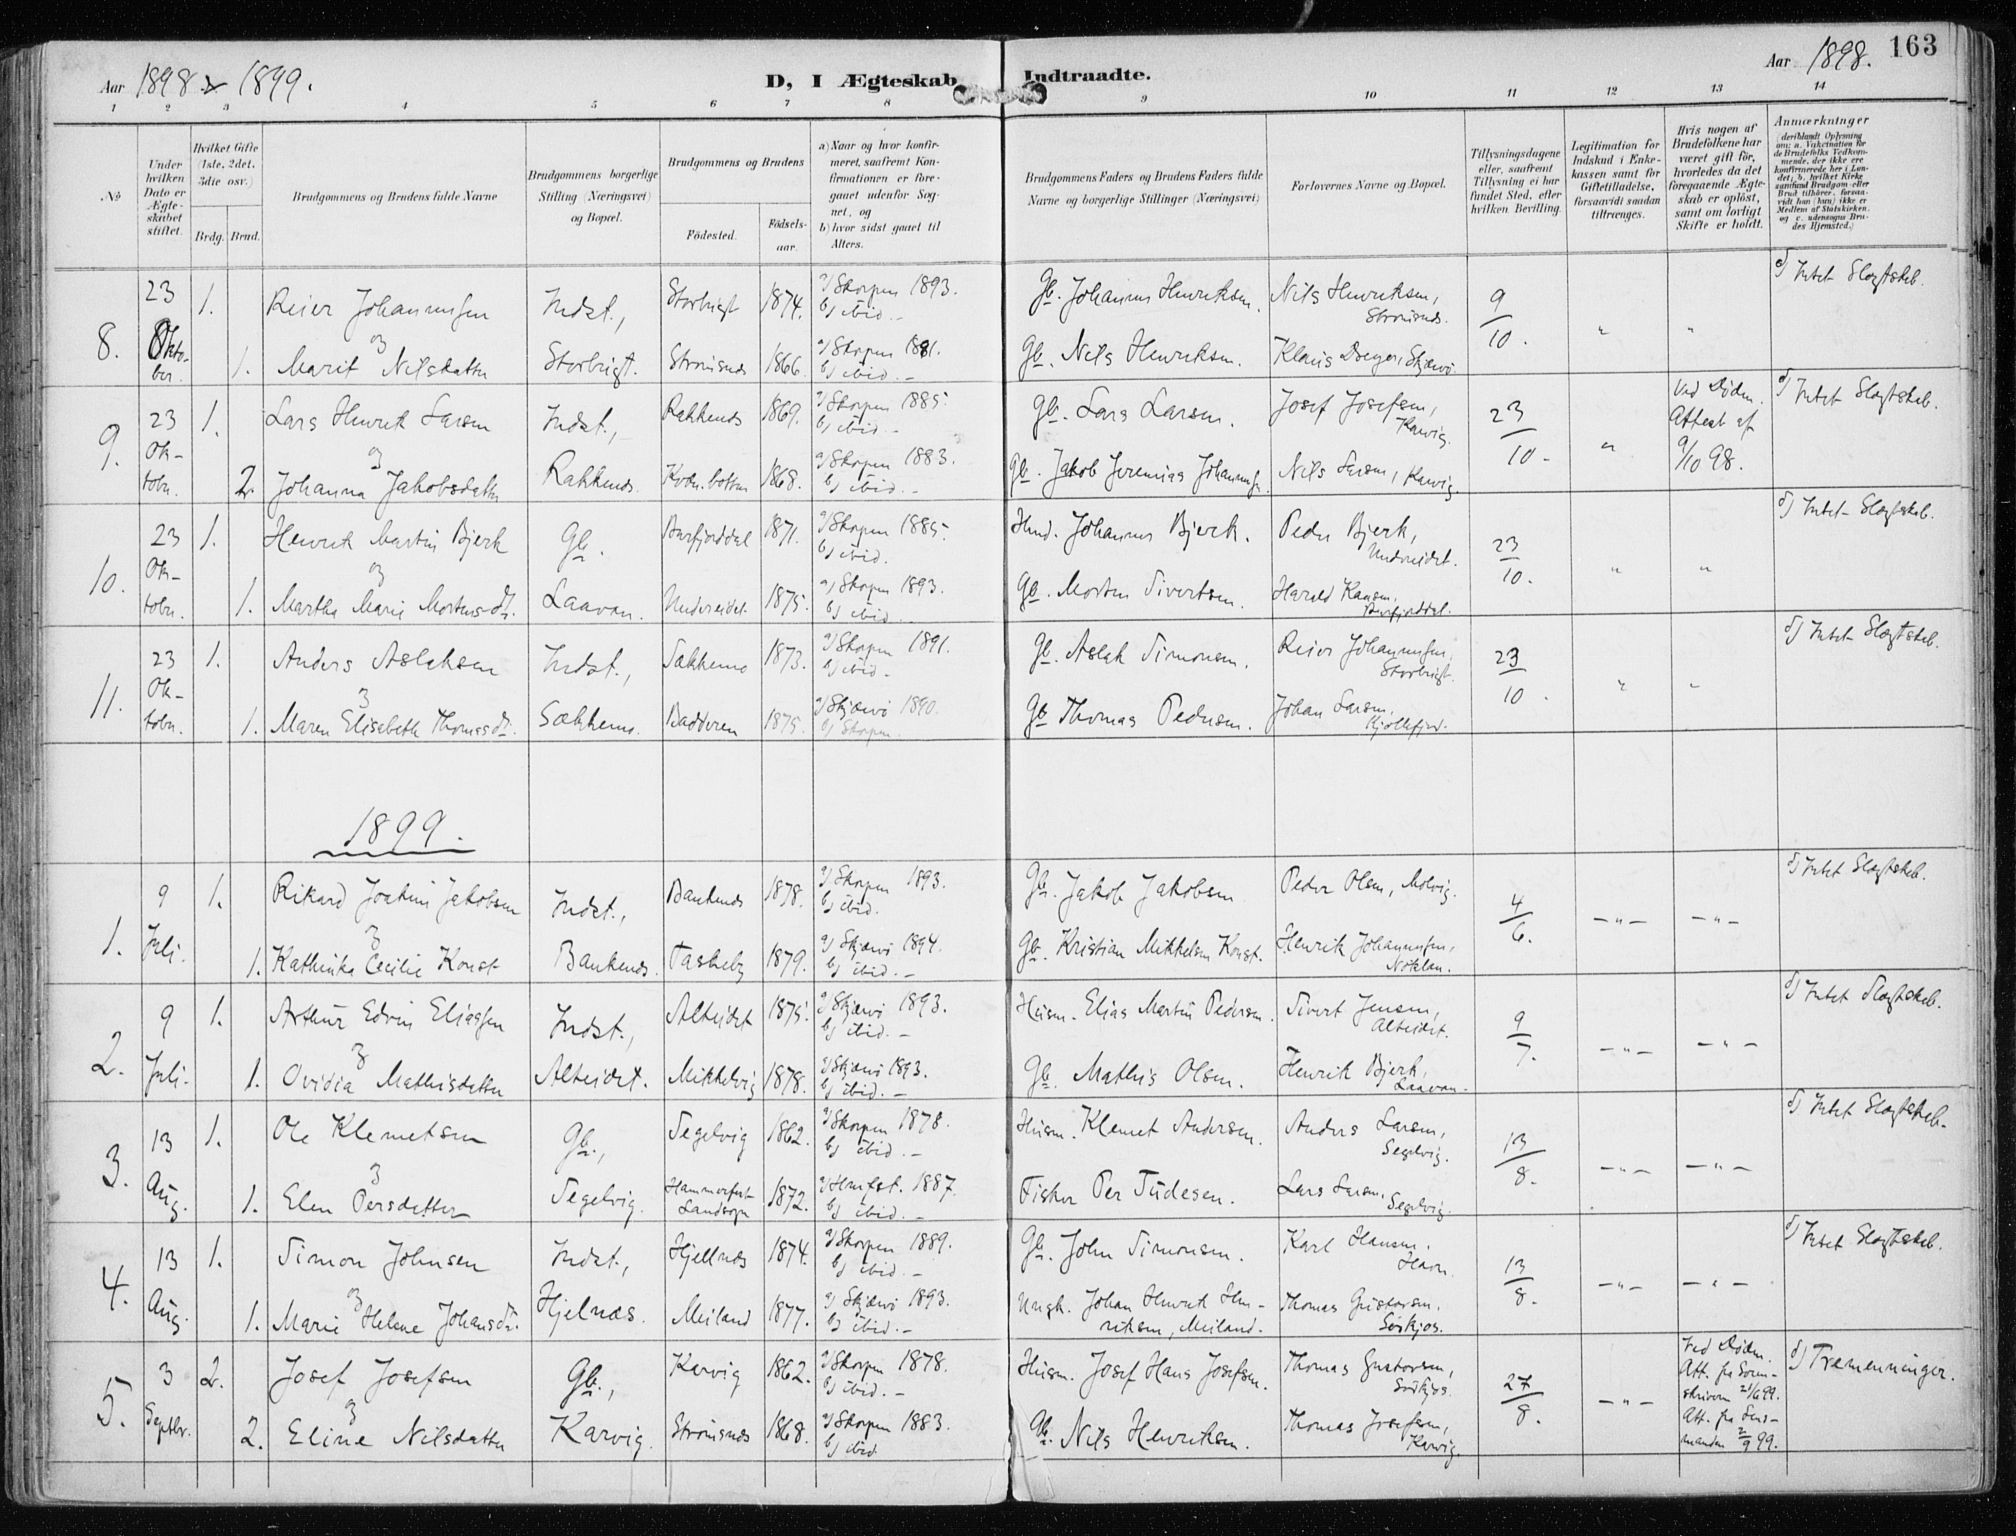 Aar 1898 & 1899.
D, I Ægteskab Indtraadte.
Aar 1898. 163
1 2 3 4 5 6 7 8 9 10 11 12 13 14
No
Under hvilken Dato er Ægteskabet stiftet.
Hvilket Gifte (1ste, 2det, 3die osv.)
Brdg. Brud.
Brudgommens og Brudens fulde Navne
Brudgommens borgerlige Stilling (Næringsvei) og Bopæl.
Brudgommens og Brudens
Fødested. Fødselsaar.
a) Naar og hvor konfirmeret, saafremt Konfirmationen er foregaaet udenfor Sognet, og
b) hvor sidst gaaet til Alters.
Brudgommens Faders og Brudens Faders fulde Navne og borgerlige Stillinger (Næringsvei)
Forlovernes Navne og Bopæl.
Tillysningsdagene eller, saafremt Tillysning ei har fundet Sted, efter hvilken Bevilling.
Legitimation for Indskud i Enkekassen samt for Giftetilladelse, forsaavidt saadan tiltrænges.
Hvis nogen af Brudefolkene har været gift før, hvorledes da det foregaaende Ægteskab er opløst, samt om lovligt Skifte er holdt.
Anmærkninger (deriblandt Oplysning om: a. Vakcination for de Brudefolks Vedkommende, der ikke ere konfirmerede her i Landet; b. hvilket Kirkesamfund Brudgom eller Brud tilhører, forsaavidt han (hun) ikke er Medlem af Statskirken, og c. udensogns Brudes Hjemsted.)
8. 23 Oktober. 1. Reier Johannessen Indst., Storbugt 1874. a) Skorpen 1893. b) ibid.— Gb. Johannes Henriksen. Nils Henriksen, Strømsnes. 9/10. " " d) Intet Slægtskab.
&
1. Marit Nilsdatter Storbugt. Strømsnes 1866. a) Skorpen 1881. b) ibid.— Gb. Nils Henriksen. Klaus Dreyer, Skjærvø
9. 23 Oktobr. 1. Lars Henrik Larsen Indst., Rakkenes 1869. a) Skorpen 1885. b) ibid.— Gb. Lars Larsen. Josef Josefsen, Karvig. 23/10. " Ved Døden. Attest af 9/10 98. d) Intet Slægtskab.
&
2. Johanna Jakobsdatter Rakkenes. Kvæn.botten 1868. a) Skorpen 1883. b) ibid.— Gb. Jakob Jeremias Johannessen. Nils Larsen, Karvig.
10. 23 Oktobr. 1. Henrik Martin Bjerk Gb. Burfjorddal 1871. a) Skorpen 1885. b) ibid. Husm. Johannes Bjerk. Peder Bjerk, Undereidet. 23/10. " " d) Intet Slægtskab.
&
1. Martha Marie Mortensdtr. Laavan. Undereidet 1875. a) Skorpen 1893. b) ibid. Gb. Morten Sivertsen. Harald Hansen, Burfjorddal.
11. 23 Oktobr. 1. Anders Aslaksen Indst., Sækkemo 1873. a) Skorpen 1891. b) ibid. Gb. Aslak Simonsen. Reier Johannessen, Storbugt. 23/10. " " d) Intet Slægtskab.
&
1. Maren Elisabeth Thomasdtr. Sækkemo. Badderen 1875. a) Skjærvø 1890. b) Skorpen. Gb Thomas Pedersen. Johan Larsen, Kjøllefjord.
1899.
1. 9 Juli. 1. Rikard Joakim Jakobsen Indst., Bankenes 1878. a) Skorpen 1893. b) ibid. Gb. Jakob Jakobsen Peder Olsen, Molvig. 4/6. —"— —"— d) Intet Slægtskab.
&
1. Kathinka Cecilie Konst Bankenes. Taskeby 1879. a) Skjærvø 1894. b) ibid.— Gb. Kristian Mikkelsen Konst. Henrik Johannessen, Nøklan.
2. 9 Juli. 1. Arthur Edvin Eliassen Indst., Alteidet 1875. a) Skjærvø 1893. b) ibid.— Husm. Elias Martin Pedersen. Sivert Jensen, Alteidet. 9/7. —"— —"— d) Intet Slægtskab.
&
1. Ovidia Mathisdatter Alteidet. Mikkelvig 1878. a) Skjærvø 1893. b) ibid.— Gb. Mathis Olsen. Henrik Bjerk, Laavan.
3. 13 Aug. 1. Ole Klemetsen Gb., Segelvig 1862. a) Skorpen 1878. b) ibid.— Husm. Klemet Andersen. Anders Larsen, Segelvig. 13/8. —"— —"— d) Intet Slægtskab.
&
1. Elen Persdatter Segelvig. Hammerfest Landsogn 1872. a) Hmfst. 1887. b) ibid.— Fisker Per Tudesen. Lars Larsen, Segelvig.
4. 13 Aug. 1. Simon Johnsen Indst., Hjellnes 1874. a) Skorpen 1889. b) ibid.— Gb. John Simonsen. Karl Hansen, Havn. 13/8. —"— —"— d) Intet Slægtskab.
&
1. Marie Helene Johansdtr. Hjelnæs. Meiland 1877. a) Skjærvø 1893. b) ibid.— Ungk. Johan Henrik Henriksen, Meiland. Thomas Gustavsen, Sørkjos.
5. 3 Septbr. 2. Josef Josefsen Gb., Karvig 1862. a) Skorpen 1878. b) ibid.— Husm. Josef Hans Josefsen. Thomas Gustavsen, Sørkjos. 27/8. —"— Ved Døden. Att. fra Sorenskriven 21/6 99. d) Tremenninger.
&
2. Eline Nilsdatter Karvig. Strømsnes 1868. a) Skorpen 1883. b) ibid Gb. Nils Henriksen. Thomas Josefsen, Karvig. Att. fra Lensmanden 2/9 99.